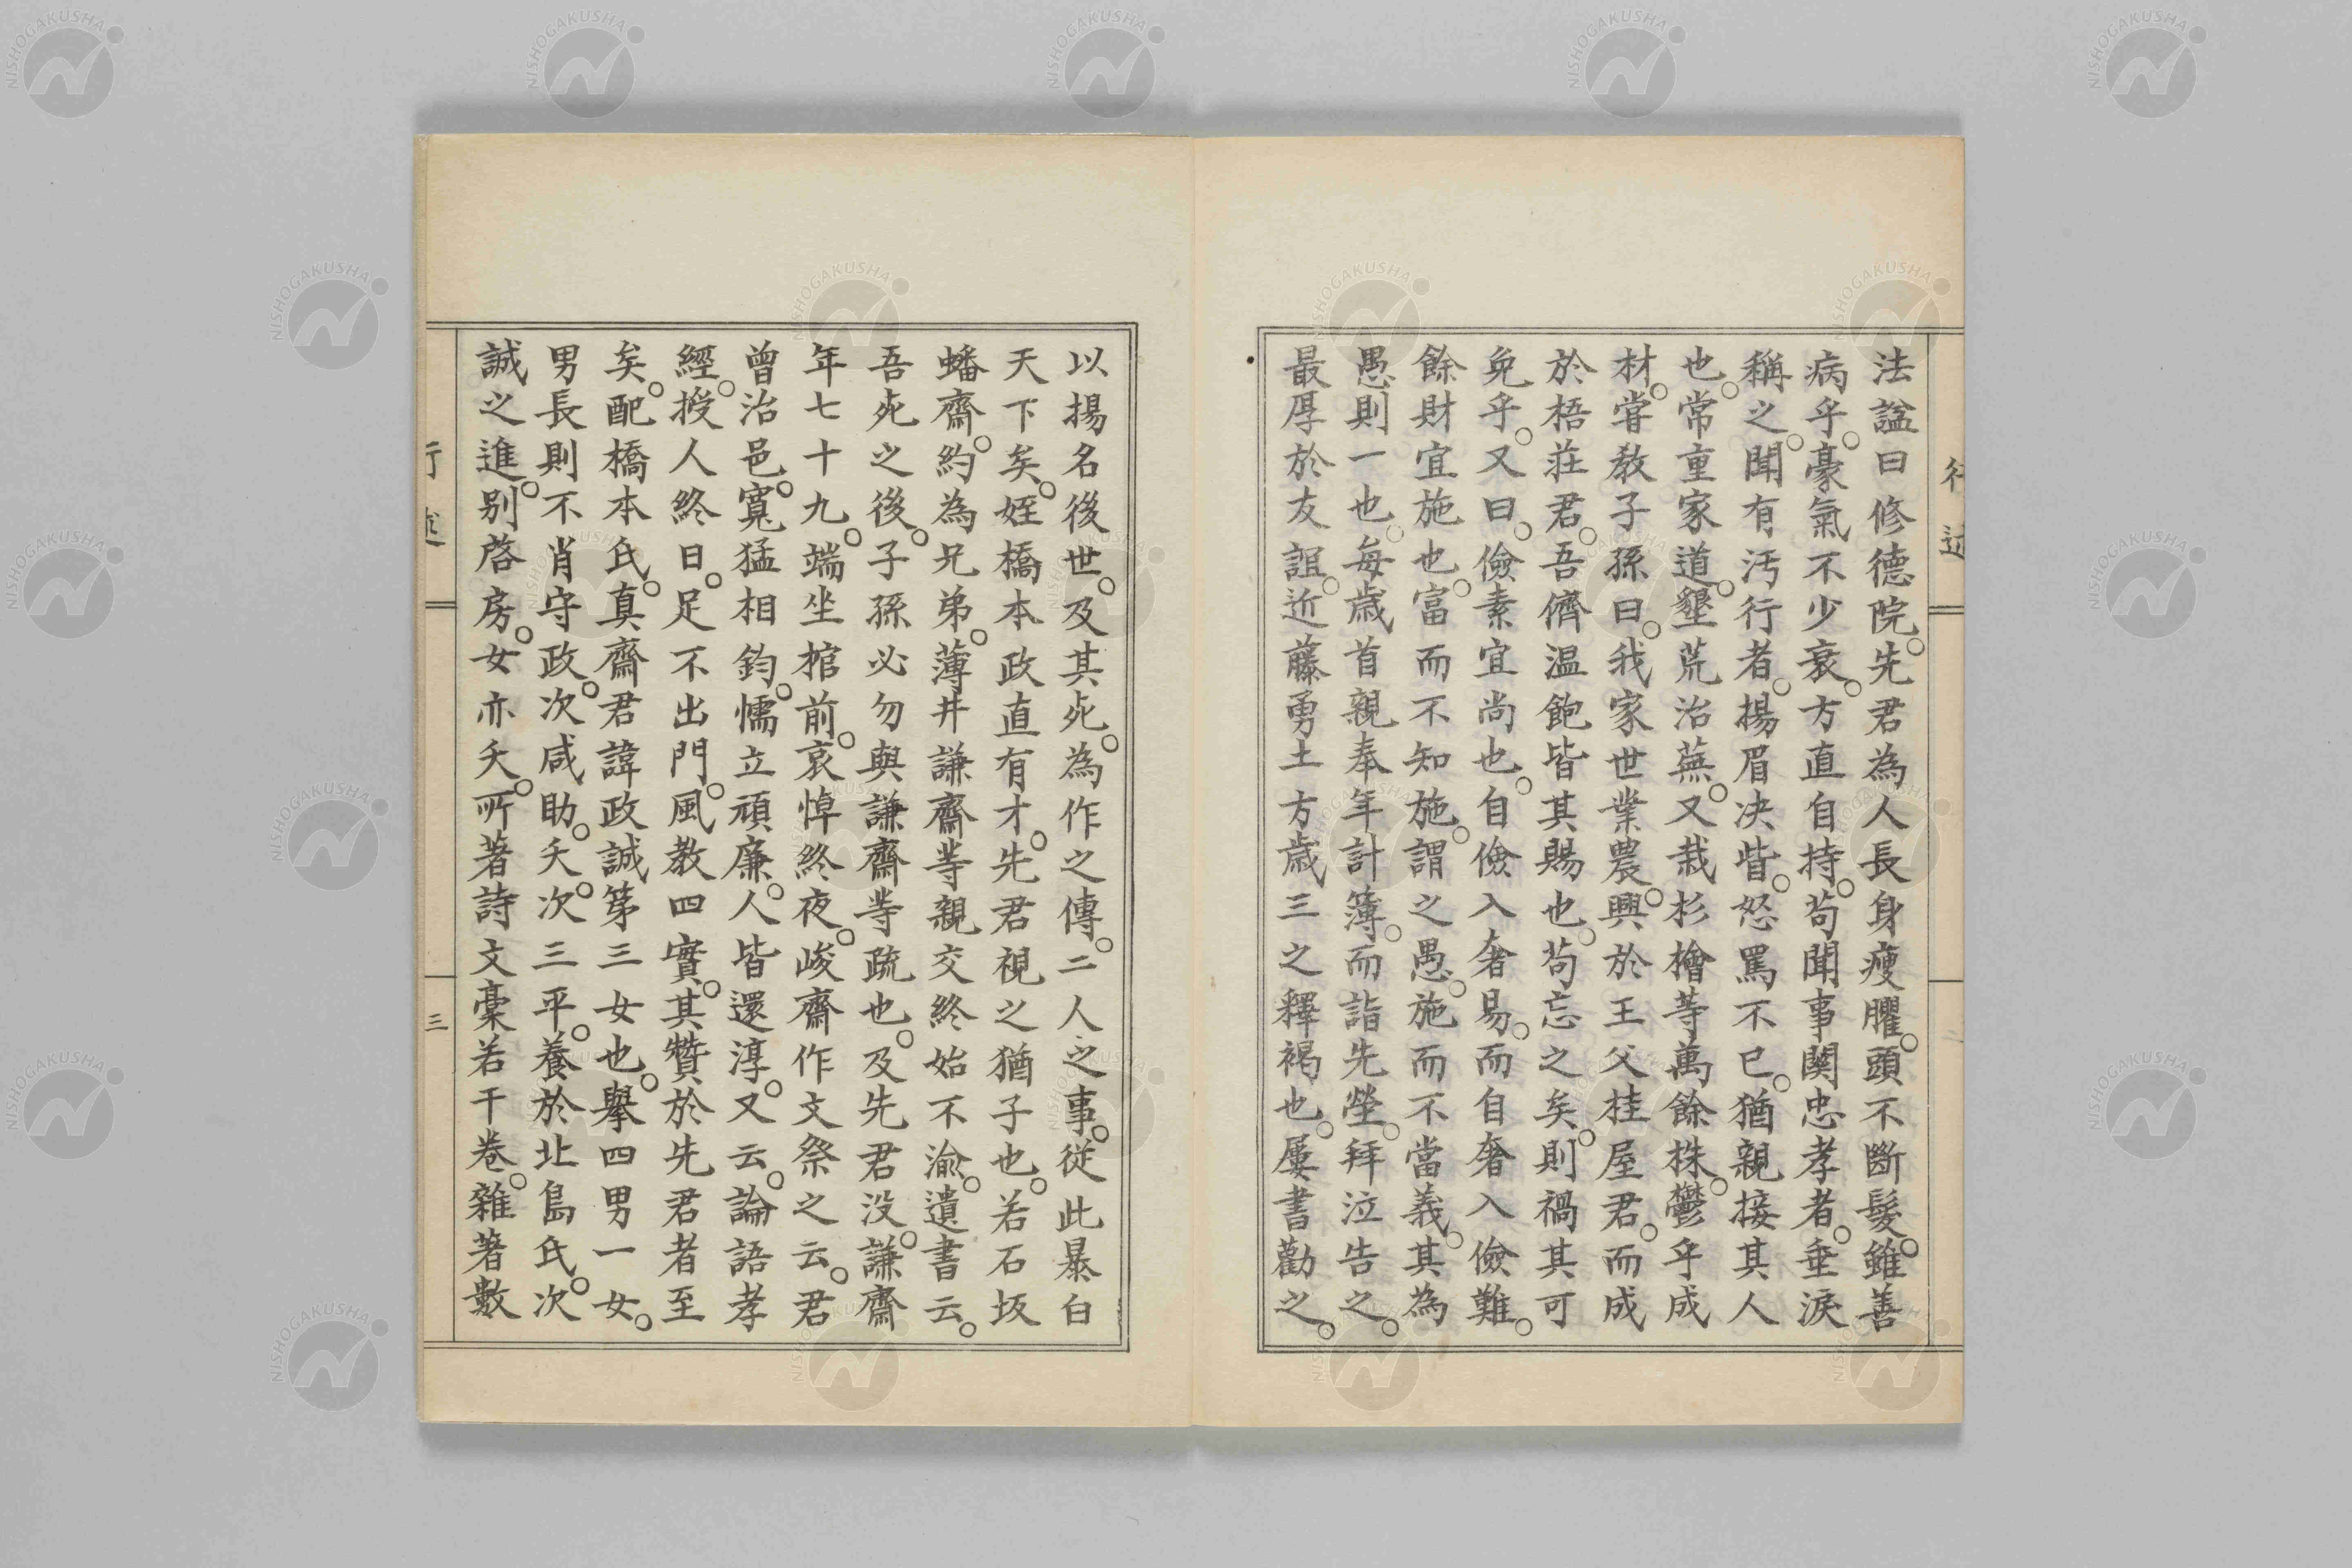 法諡曰修德院。先君為人長身瘦臞。頭不斷髮。雖善
病乎。豪氣不少衰。方直自持。苟聞事關忠孝者。垂淚
稱之。聞有汚行者。揚眉决眥。怒罵不已。猶親接其人
也。常重家道。墾荒治蕪。又栽杉檜等萬餘株。鬱乎成
材。甞教子孫曰。我家世業農。興於王父桂屋君。而成
於梧莊君。吾儕温飽皆其賜也。苟忘之矣。則禍其可
免乎。又曰。儉素宜尚也。自儉入奢易。而自奢入儉難。
餘財宜施也。富而不知施。謂之愚。施而不當義。其為
愚則一也。每歲首親奉年計簿。而詣先塋。拜泣告之。
最厚於友誼。近藤勇土方歲三之釋褐也。屢書勸之。
行述
以揚名後世。及其死。為作之傳。二人之事。從此暴白
天下矣。姪橋本政直有才。先君視之猶子也。若石坂
蟠齋。約為兄弟。薄井謙齋等親交終始不渝。遺書云。
吾死之後。子孫必勿與謙齋等疏也。及先君没。謙齋
年七十九。端坐棺前。哀悼終夜。峻齋作文祭之云。君
曾治邑。寬猛相鈞。懦立頑廉。人皆還淳。又云。論語孝
經。授人終日。足不出門。風教四實。其贊於先君者至
矣。配橋本氏。真齋君諱政誠第三女也。擧四男一女。
男長則不肖守政。次咸助。夭。次三平。養於北島氏。次
誠之進。别啓房。女亦夭。所著詩文稾若干卷。雜著數
行述
三
NISHOGAKUSHA